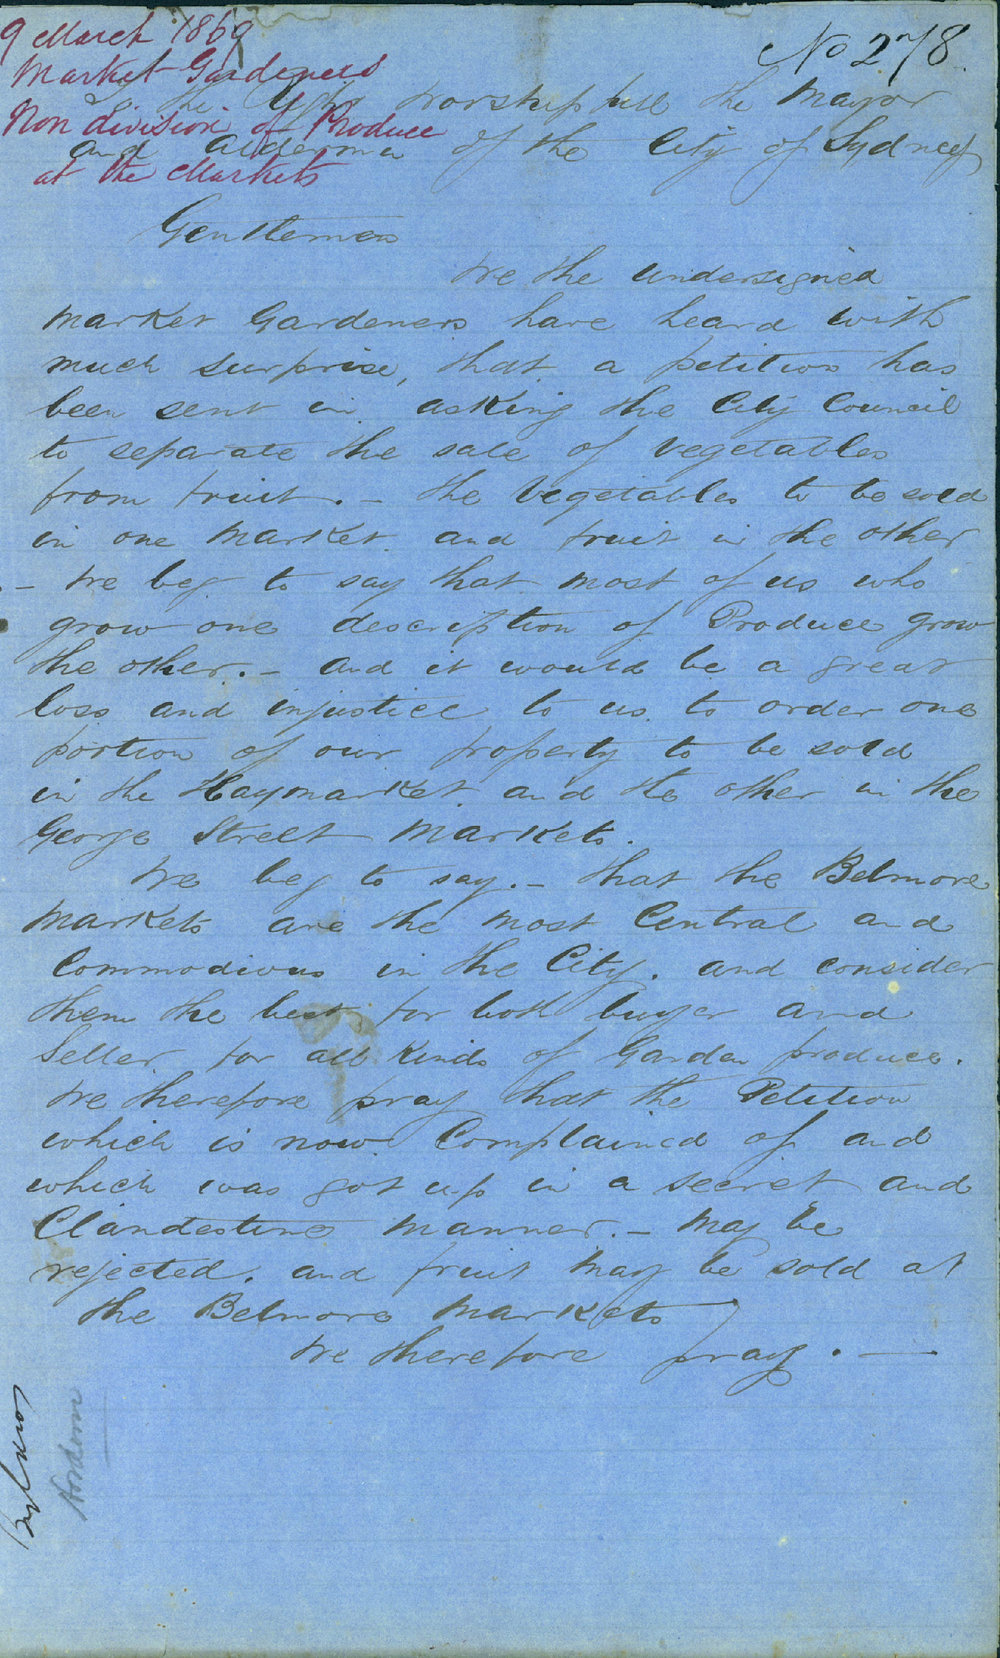 9 March 1869
Market Gardeners
Non division of Produce
at the Markets
No 278.
To the Right worshipfull the Mayor
and Aldermen of the City of Sydney
Gentlemen
We the undersigned
Market Gardeners have heard with
much surprise, that a petition has
been sent in asking the City Council
to separate the sale of vegetables
from fruit. - the vegetables to be sold
in one Market and fruit in the other
- We beg to say that most of us who
grow one description of Produce grow
the other. - and it would be a great
loss and injustice to us to order one
portion of our property to be sold
in the Haymarket and the other in the
George Street Markets.
We beg to say. - that the Belmore
Markets are the most Central and
Commodious in the City. and consider
them the best for both buyer and
Seller for all kinds of Garden produce.
We therefore pray that the Petition
which is now Complained of and
which was got up in a secret and
Clandestine manner. - May be
rejected. and fruit may be sold at
the Belmore Markets
We therefore pray. —